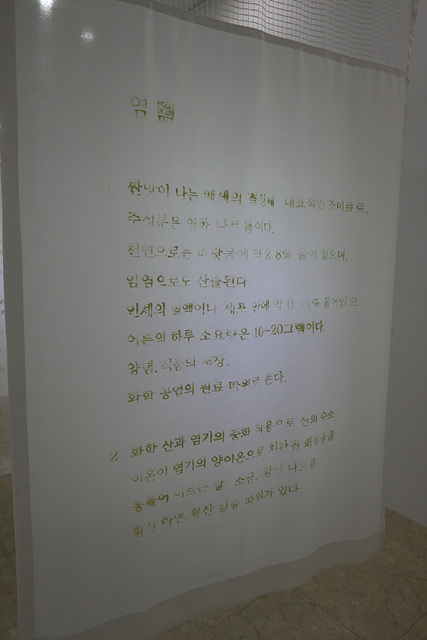 염
1. 짠맛이 나는 백색의 결정체 대표적인 조미료로,
주성분은 염화 나트륨이다.
천연으로는 바닷물에 약 2.8% 들어 있으며,
암염으로도 산출된다.
인체의 혈액이나 세포 안에 약 0.71% 들어있고
어른의 하루 소요량은 10~20그램이다.
양념, 식품의 저장,
화학 공업의 원료 따위로 쓴다.
2. 화학 산과 염기의 중화 작용으로 산의 수소
이온이 염기의 양이온으로 치환된 화합물을
통틀어 이르는 말 소금, 황산 나트륨,
황산 아연, 황산 칼슘 따위가 있다.